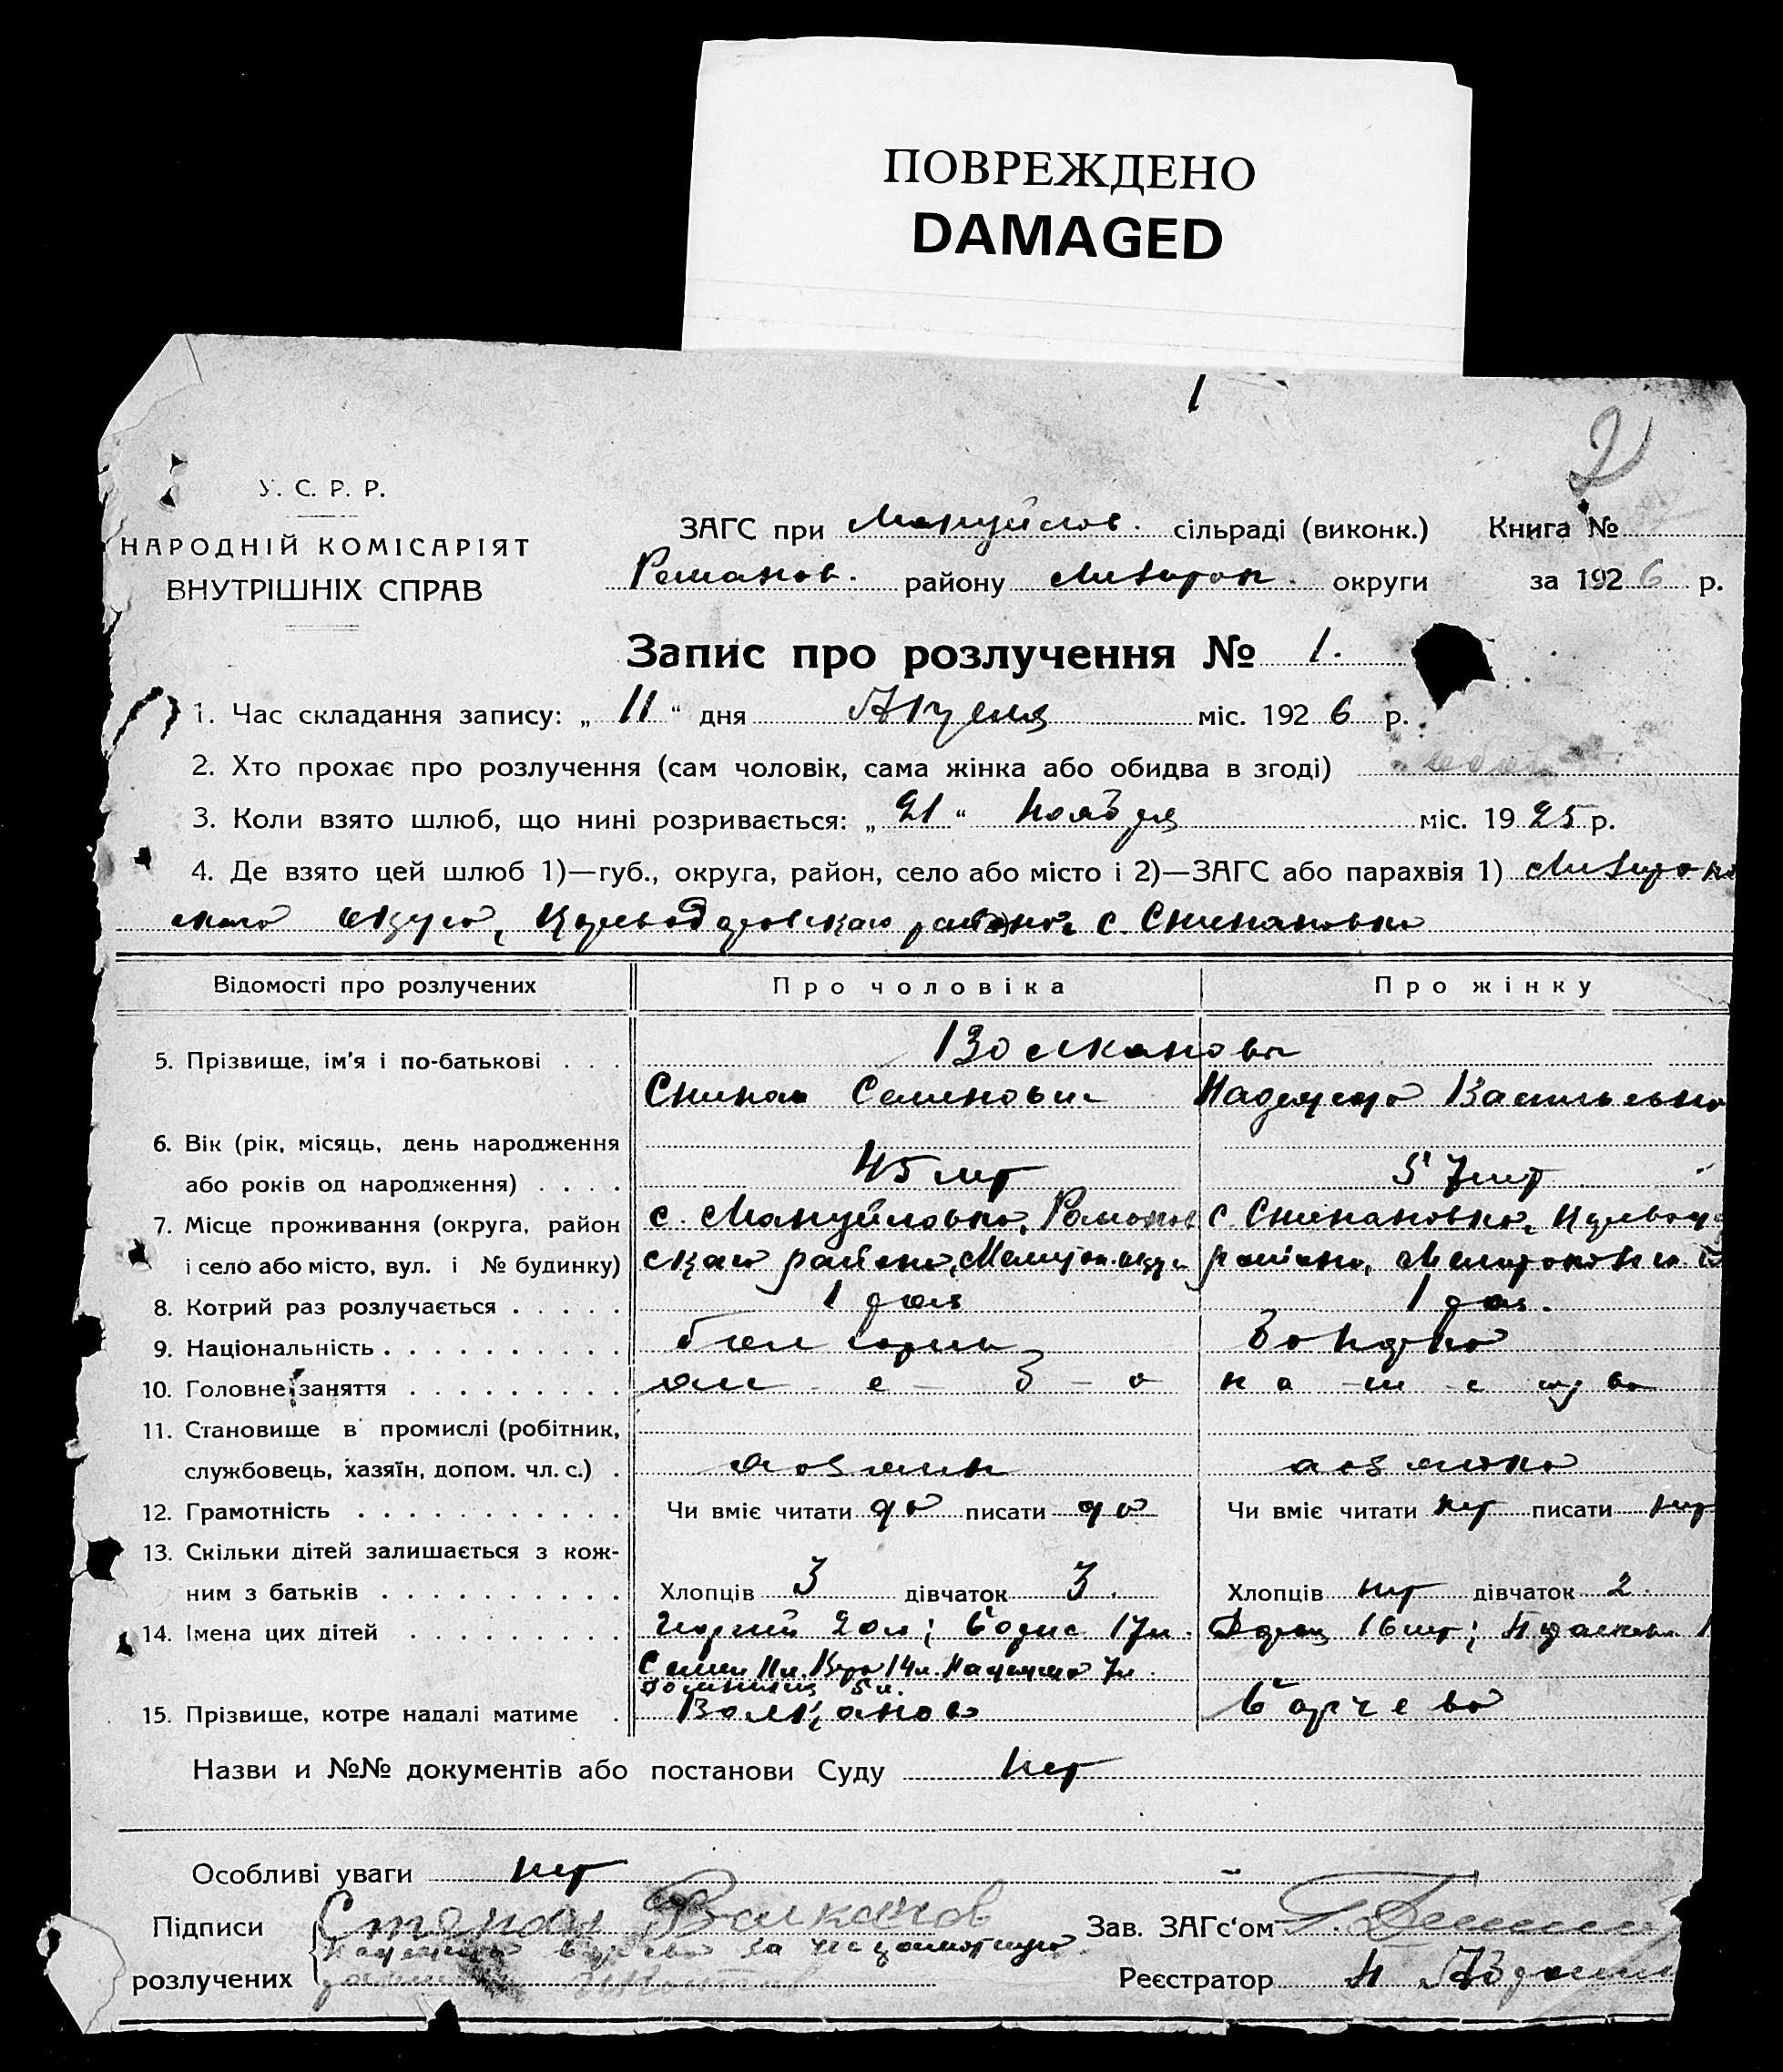 ПОВРЕЖДЕНО
DAMAGED
1
2
У. С. Р. Р.
НАРОДНІЙ КОМІСАРІЯТ
ВНУТРІШНІХ СПРАВ
ЗАГС при Мануйлов. сільраді (виконк.) Книга №
Романов. району Мелитоп. округи за 1926 р.
Запис про розлучення № 1.
1. Час складання запису: „ 11 “ дня Апреля міс. 1926 р.
2. Хто прохає про розлучення (сам чоловік, сама жінка або обидва в згоді)
3. Коли взято шлюб, що нині розривається: „ 21 “ Ноября міс. 1925 р.
4. Де взято цей шлюб 1)—губ., округа, район, село або місто і 2)—ЗАГС або парахвія 1) Мелитопо
района с. Степановка
Відомості про розлучених Про чоловіка Про жінку
5. Прізвище, ім'я і по-батькові . . . Волкановы
Степан Семенович Надежда Васильевна
6. Вік (рік, місяць, день народження
або років од народження) . . . . 45 лет 37 лет
7. Місце проживання (округа, район с. Мануйловка, Романов с Степановка,
і село або місто, вул. і № будинку) скаго района, района,
8. Котрий раз розлучається . . . . . 1 раз 1 раз.
9. Національність . . . . . . . . . . болгарин болгарка
10. Головне заняття . . . . . . . . . хле – б – о п а – ш – е ство
11. Становище в промислі (робітник,
службовець, хазяїн, допом. чл. с.) . хозяин хозяйка
12. Грамотність . . . . . . . . . . . Чи вміє читати да писати да Чи вміє читати нет писати нет
13. Скільки дітей залишається з кож-
ним з батьків . . . . . . . . . . Хлопців 3 дівчаток 3. Хлопців нет дівчаток 2.
14. Імена цих дітей . . . . . . . . . Георгий 20 л; Борис 17 л. 16 лет; Прасковья 1
Семен 11 л. Вера 14 л. Надежда 7 л.
5 л.
15. Прізвище, котре надалі матиме . Волканов
Назви и №№ документів або постанови Суду нет
Особливі уваги нет
Підписи Степан Волканов Зав. ЗАГс'ом
Надежда за неграмотную
розлучених Реєстратор